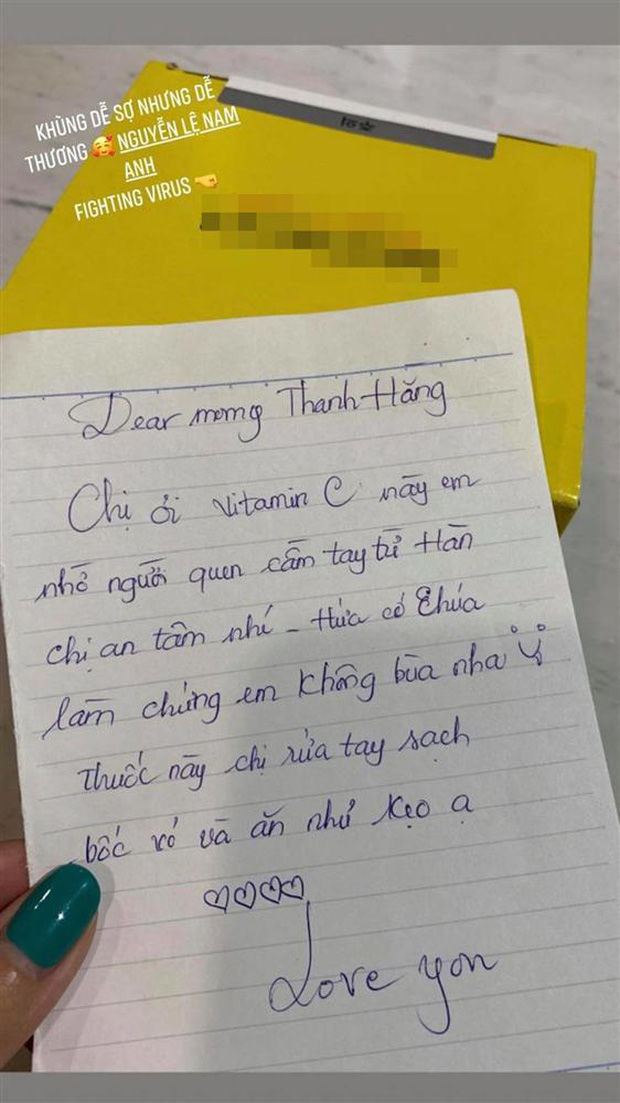 KHÙNG DỄ SỢ NHƯNG DỄ
THƯƠNG 🥰 NGUYỄN LỆ NAM
ANH
FIGHTING VIRUS 🤜
Dear momy Thanh Hằng
Chị ơi vitamin C này em
nhờ người quen cầm tay từ Hàn
chị an tâm nhí - Hứa có Chúa
làm chứng em không bùa nha
thuốc này chị rửa tay sạch
bóc vỏ và ăn như kẹo ạ
♡♡♡♡
Love you